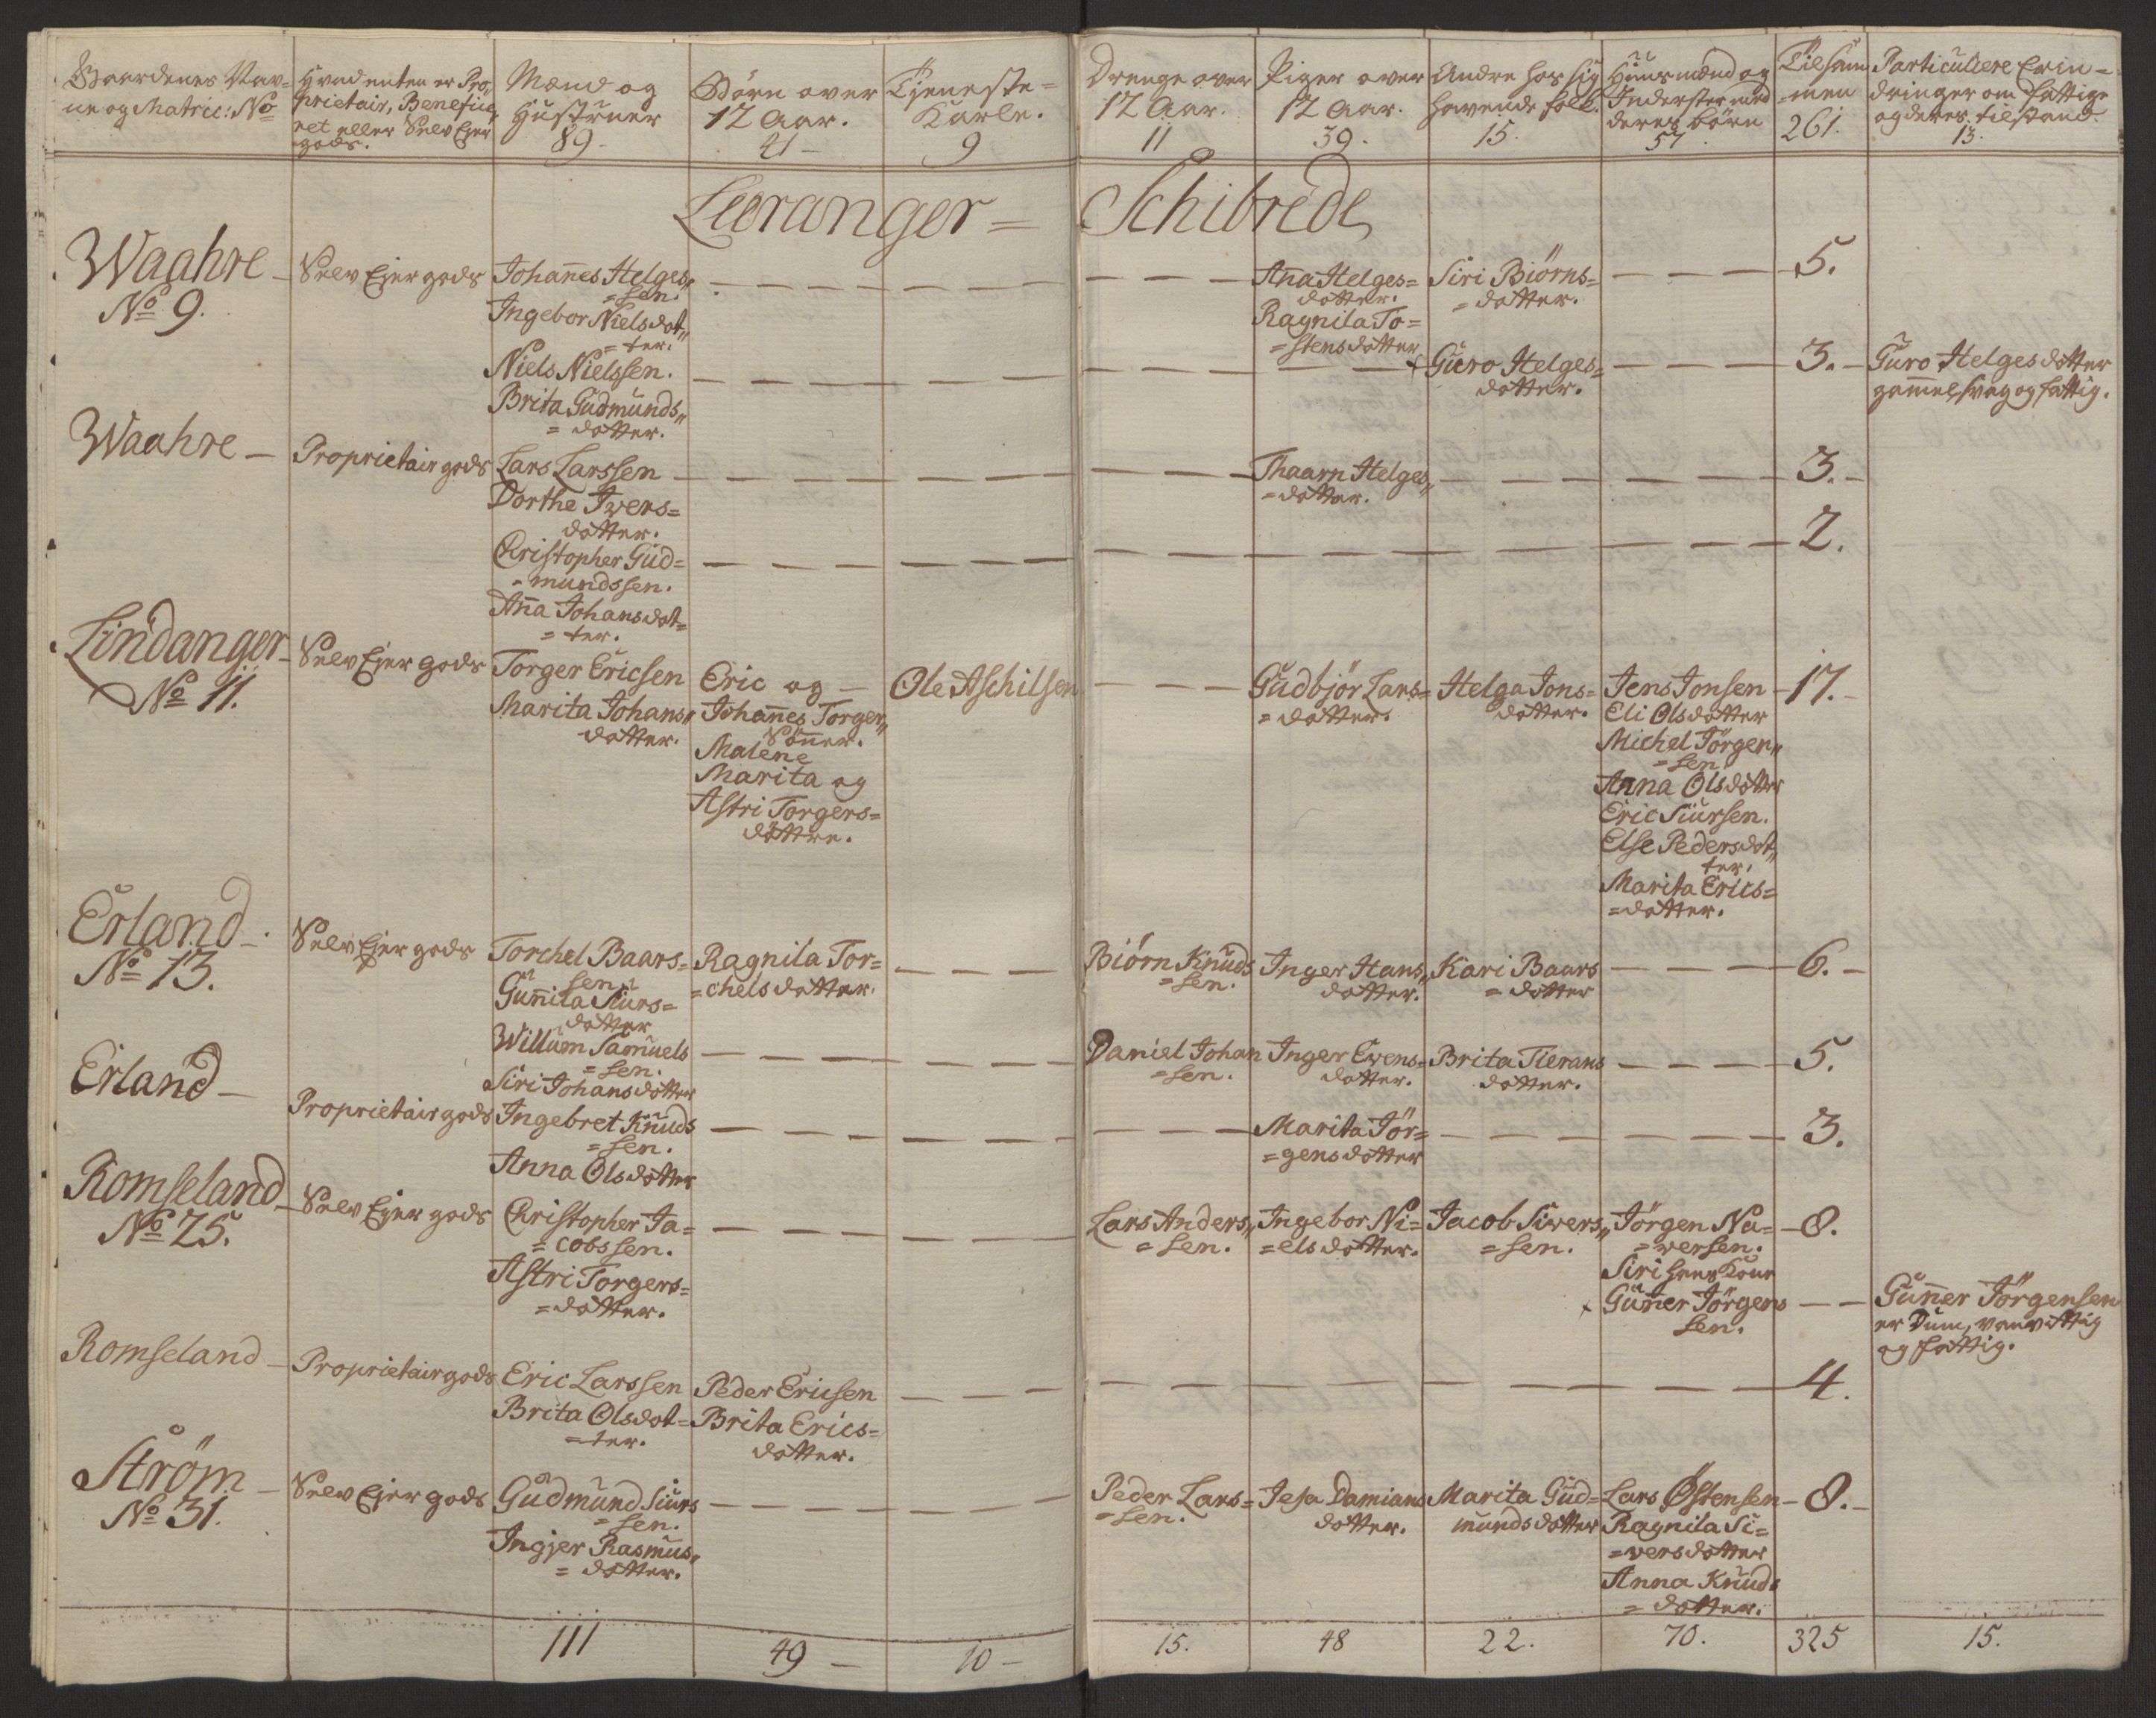 Gaardenes Nav-
ne og Matric: No
Hvad enten er Pro,
prietair, Benefice,
ret eller Selv Ejer
gods.
Mænd og
Hustruer
89.
Børn over
12 Aar.
41 —
Tjeneste-
Karle.
9
Drenge over
12 Aar.
11
Piger over
12 Aar.
39.
Andre hos sig
havende folk.
15.
Huusmænd og
Inderster med
deres børn
57.
Tilsam
=men
261.
Particuliere Erin-
dringer om fattige
og deres tilstand.
13.
Leeranger = Schibrede
Waahre —
No 9.
Selv Ejer gods
Johannes Helges„
=sen.
Ingebor Nielsdot„
=ter.
Anna Helges=
dotter.
Ragnila To=
=stensdotter
Siri Biörns=
=dotter.
5.
Niels Nielssen.
Brita Gudmunds„
=dotter.
Guro Helges=
dotter.
3. —
Guro Helgesdotter
gammel, svag og fattig.
Waahre —
Proprietair gods
Lars Larssen
Dorthe Iwers=
dotter.
Thaarn Helges„
=dotter.
3. —
Christopher Gud=
=mundssen.
Anna Johansdot=
=ter.
2.
Lindanger —
No 11.
Selv Ejer gods
Torger Ericsen
Marita Johans„
dotter.
Eric og —
Johannes Torger„
Sönner.
Malene
Marita og
Astri Torgers=
döttre.
Ole Aschilsen
Gudbjör Lars=
=dotter.
Helga Jons=
dotter.
Jens Jonsen
Eli Olsdotter
Michel Jörgen„
=sen
Anna Olsdotter
Eric Siursen.
Else Pedersdot„
ter.
Marita Erics=
=dotter.
17. —
Erland —
No 13.
Selv Ejer gods
Torchel Baars=
sen
Gunnila Siurs=
dotter
Ragnila Tor=
=chelsdotter.
Biörn Knuds
=sen.
Inger Hans„
dotter.
Kari Baars
=dotter
6. —
Erland —
Willum Samuels
=sen.
Siri Johansdotter
Daniel Johan
=sen.
Inger Ewens=
dotter.
Brita Tierans
dotter.
5.
Proprietair gods
Ingebret Knuds
=sen.
Anna Olsdotter
Marita Jör=
=gensdotter
3.
Romseland —
No 25.
Selv Ejer gods
Christopher Ja=
=cobssen.
Astri Torgers=
=dotter.
Lars Anders„
=sen.
Ingebor Ni=
=elsdotter.
Jacob Sivers„
=sen.
Jörgen Na=
=versen.
Siri hans Kone
Gunner Jörgens
sen.
8.
Gunner Jörgensen
er Dum, vanvittig
og fattig.
Romseland —
Proprietair gods
Eric Larssen
Brita Olsdot=
=ter.
Peder Ericsen
Brita Erics=
dotter.
4.
Ström —
No 31.
Selv Ejer gods
Gudmund Siurs
=sen.
Ingjer Rasmus„
=dotter.
Peder Lars=
=sen.
Jesa Damians
dotter.
Marita Gud=
mundsdotter
Lars Østensen
Ragnila Si=
=versdotter
Anna Knuds
=dotter.
8. —
111
49 —
10 —
15.
48
22.
70.
325
15.